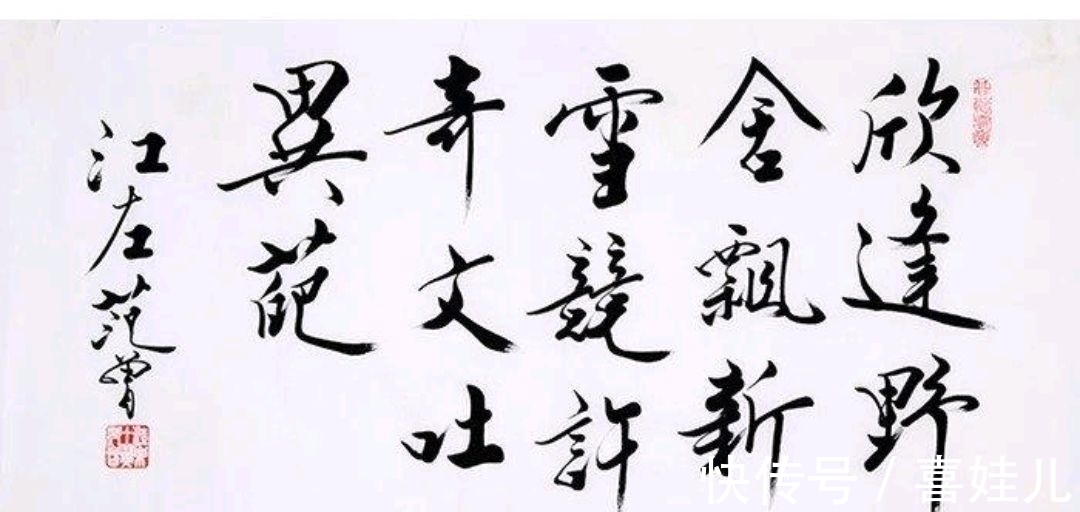 欣逢野
舍飄新
雪競許
奇文吐
異葩
江左范曾
快传号 / 喜娃儿